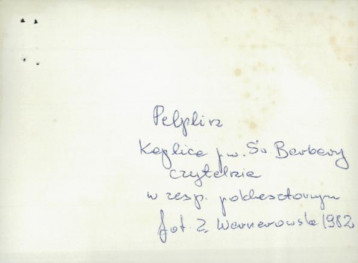 Pelplin
Kaplica p.w. Św Barbary
czytelnia
w zesp. poklasztornym
fot Z. Warnerowska 1982